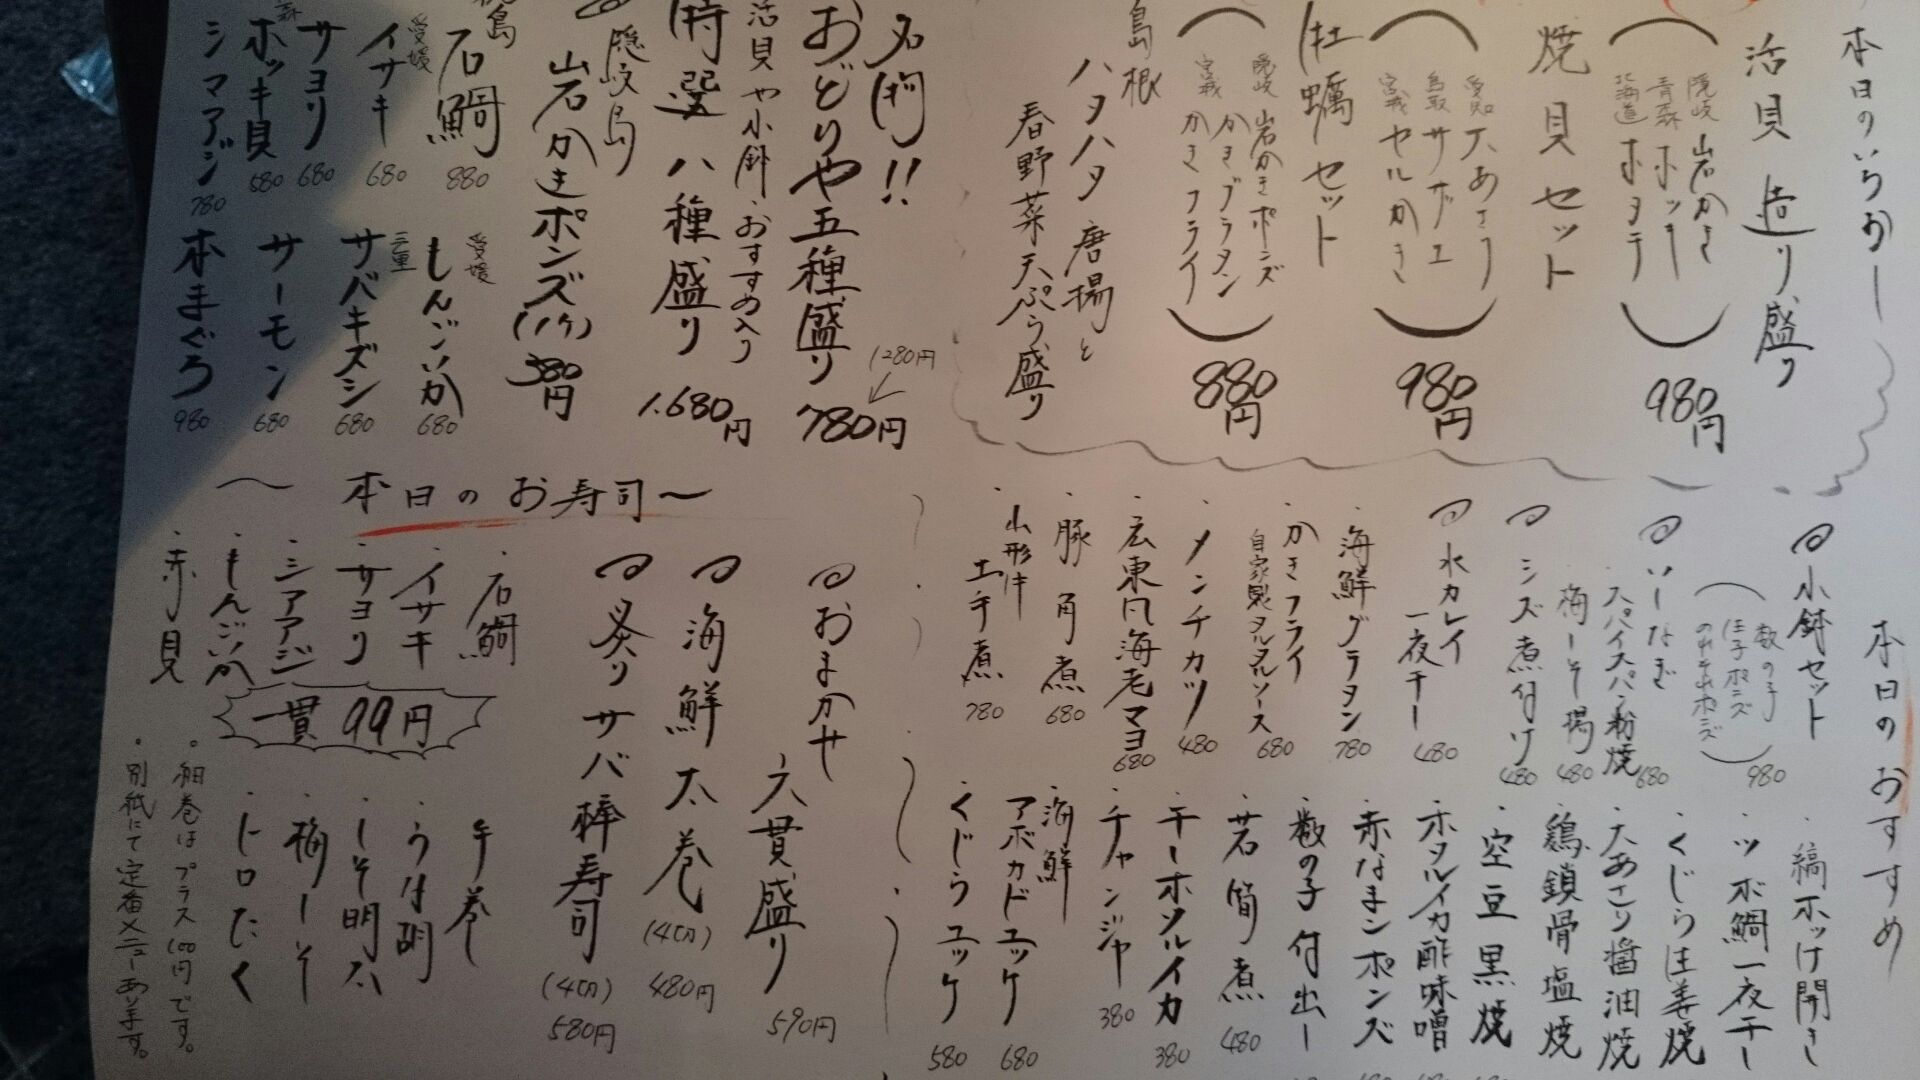 本日のいちおしー
活貝造り盛り
隠岐 岩かき
青森 ホッキ
北海道 ホタテ
980円
焼貝セット
愛知 大あさり
鳥取 サザエ
宮城 セルかき
980円
牡蠣セット
隠岐 岩かきポンズ
かきグラタン
宮城 かきフライ
880円
島根
ハタハタ唐揚と
春野菜天ぷら盛り
名物!!
おどりや五種盛り 780円
1280円
活貝や小鉢・おすすめ入り
特選八種盛り 1.680円
隠岐島
岩かきポンズ(1ケ) 380円
石鯛 880
愛媛 イサキ 680
サヨリ 680
ホッキ貝 580
シマアジ 780
愛媛 もんごいか 680
三重 サバキズシ 680
サーモン 680
本まぐろ 980
本日のおすすめ
小鉢セット
数の子
白子ポンズ
のれそれポンズ
980
スパイスパン粉焼 680
・梅しそ揚 480
シズ煮付け 480
水カレイ
一夜干し 480
海鮮グラタン 780
・かきフライ
自家製タルタルソース 680
・メンチカツ 480
・広東風海老マヨ 680
・豚角煮 680
・山形牛
土手煮 780
・縞ホッケ開き
・ツボ鯛一夜干し
・くじら生姜焼
・大あさり醤油焼
・鶏鎖骨塩焼
・空豆黒焼
・ホタルイカ酢味噌
・赤なまこポンズ
・数の子付出し
・若筍煮 480
・干しホタルイカ 380
・チャンジャ 380
・海鮮
アボカドユッケ 680
・くじらユッケ 580
〜本日のお寿司〜
おまかせ
六貫盛り 590円
海鮮太巻 (4切) 480円
炙りサバ棒寿司 (4切) 580円
・石鯛
・イサキ
・サヨリ
・シマアジ
・もんごいか
・赤貝
一貫 99円
手巻
・しそ明太
・梅しそ
・トロたく
・細巻はプラス100円です。
・別紙にて定番メニューあります。